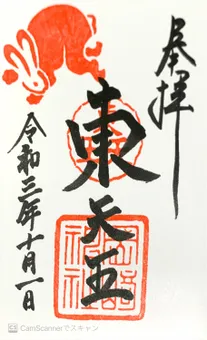 奉拝
東天王
令和三年十月一日
CamScannerでスキャン